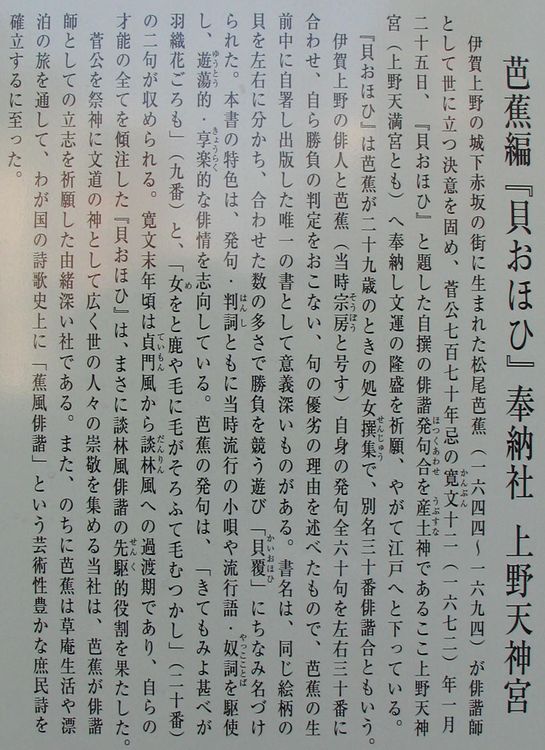 芭蕉編『貝おほひ』奉納社 上野天神宮
伊賀上野の城下赤坂の街に生まれた松尾芭蕉(一六四四~一六九四)が俳諧師
として世に立つ決意を固め、菅公七百七十年忌の寛文十二(一六七二)年一月
二十五日、『貝おほひ』と題した自撰の俳諧発句合を産土神であるここ上野天神
宮(上野天満宮とも)へ奉納し文運の隆盛を祈願、やがて江戸へと下っている。
『貝おほひ』は芭蕉が二十九歳のときの処女撰集で、別名三十番俳諧合ともいう。
伊賀上野の俳人と芭蕉(当時宗房と号す)自身の発句全六十句を左右三十番に
合わせ、自ら勝負の判定をおこない、句の優劣の理由を述べたもので、芭蕉の生
前中に自署し出版した唯一の書として意義深いものがある。書名は、同じ絵柄の
貝を左右に分かち、合わせた数の多さで勝負を競う遊び「貝覆」にちなみ名づけ
られた。本書の特色は、発句・判詞ともに当時流行の小唄や流行語・奴詞を駆使
し、遊蕩的・享楽的な俳情を志向している。芭蕉の発句は、「きてもみよ甚べが
羽織花ごろも」(九番)と、「女をと鹿や毛に毛がそろふて毛むつかし」(二十番)
の二句が収められる。寛文末年頃は貞門風から談林風への過渡期であり、自らの
才能の全てを傾注した『貝おほひ』は、まさに談林風俳諧の先駆的役割を果たした。
菅公を祭神に文道の神として広く世の人々の崇敬を集める当社は、芭蕉が俳諧
師としての立志を祈願した由緒深い社である。また、のちに芭蕉は草庵生活や漂
泊の旅を通して、わが国の詩歌史上に「蕉風俳諧」という芸術性豊かな庶民詩を
確立するに至った。